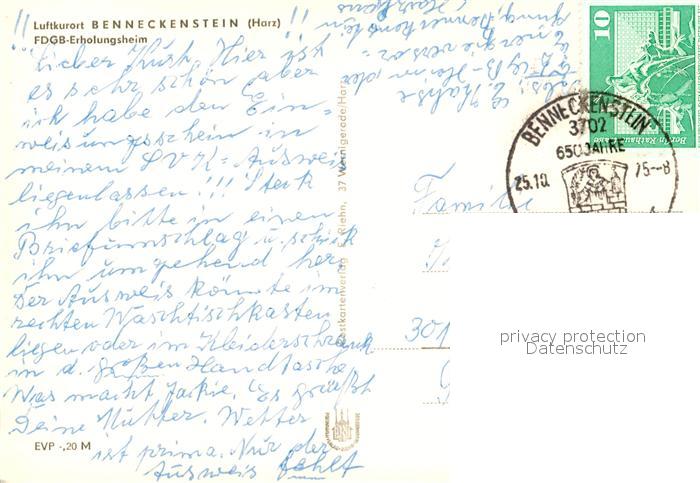 Luftkurort BENNECKENSTEIN (Harz)
FDGB-Erholungsheim
!! Lieber Kurt. Hier ist !!
es sehr schön aber
ich habe den Ein-
weisungsschein in
meinem SVK-Ausweis
liegenlassen!!! Steck
ihn bitte in einen
Briefumschlag u. schick
ihn umgehend her.
Der Ausweis könnte im
rechten Waschtischkasten
liegen oder im Kleiderschrank
in d. großen Handtasche
Was macht Jackie. Es grüßt
Deine Mutter. Wetter
ist prima. Nur der
Ausweis fehlt
EVP -,20 M
Postkartenverlag Riehn, 37 Wernigerode/Harz
10
Berlin Rathausstraße
BENNECKENSTEIN
3702
650 JAHRE
25.10. 75--8
Familie
301
privacy protection
Datenschutz